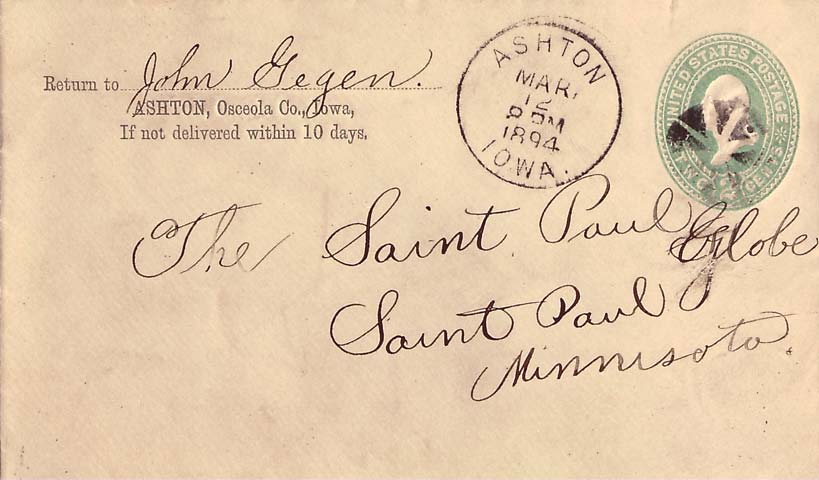 Return to John Gegen.
ASHTON, Osceola Co., Iowa,
If not delivered within 10 days.
ASHTON
MAR.
12
8 PM
1894
IOWA.
UNITED STATES POSTAGE
TWO CENTS
The Saint Paul Globe
Saint Paul
Minnisota.